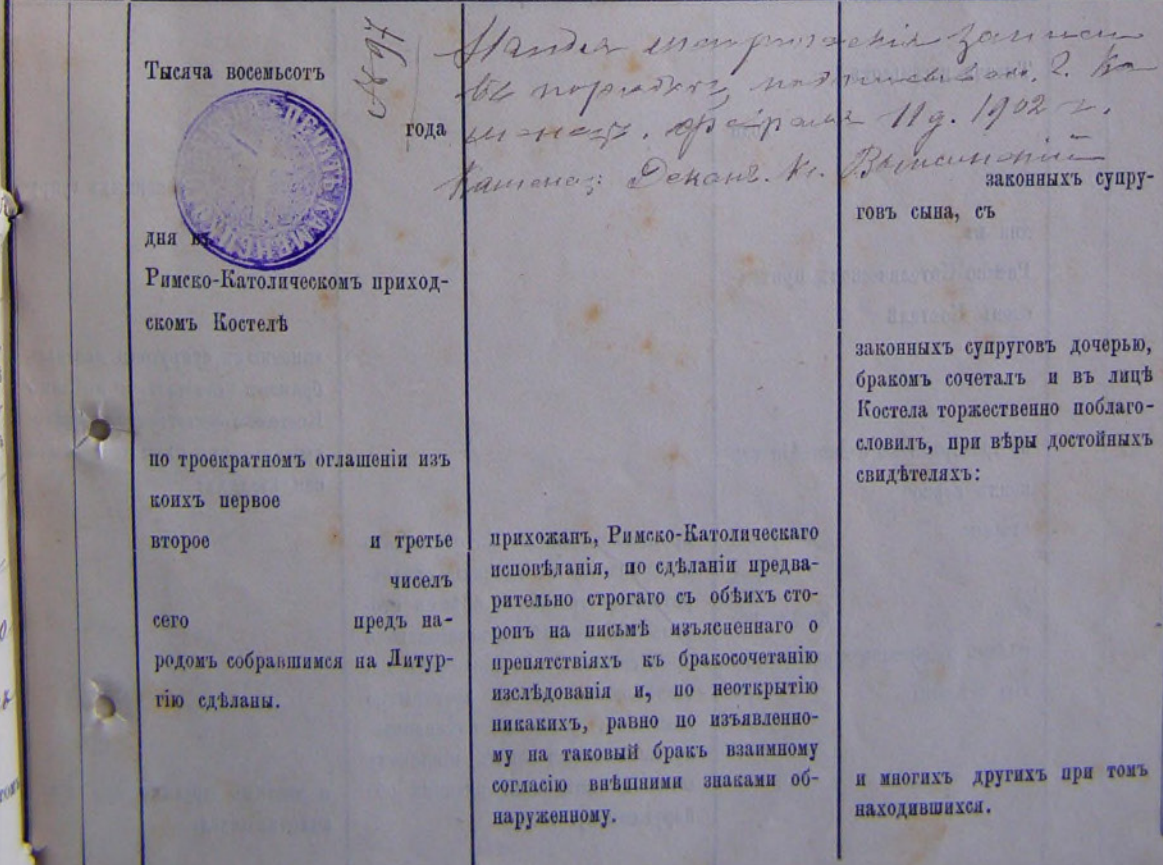 № 97
Тысяча восемьсотъ
года
дня въ
Римско-Католическомъ приход-
скомъ Костелѣ
по троекратномъ оглашеніи изъ
коихъ первое
второе и третье
чиселъ
сего предъ на-
родомъ собравшимся на Литур-
гію сдѣланы.
записи
въ 2.
11 д. 1902 г.
Деканъ Кс.
прихожанъ, Римско-Католическаго
исповѣданія, по сдѣланіи предва-
рительно строгаго съ обѣихъ сто-
ронъ на письмѣ изъясненнаго о
препятствіяхъ къ бракосочетанію
изслѣдованія и, по неоткрытію
никакихъ, равно по изъявленно-
му на таковый бракъ взаимному
согласію внѣшними знаками об-
наруженному.
законныхъ супру-
говъ сына, съ
законныхъ супруговъ дочерью,
бракомъ сочеталъ и въ лицѣ
Костела торжественно поблаго-
словилъ, при вѣры достойныхъ
свидѣтеляхъ:
и многихъ другихъ при томъ
находившихся.